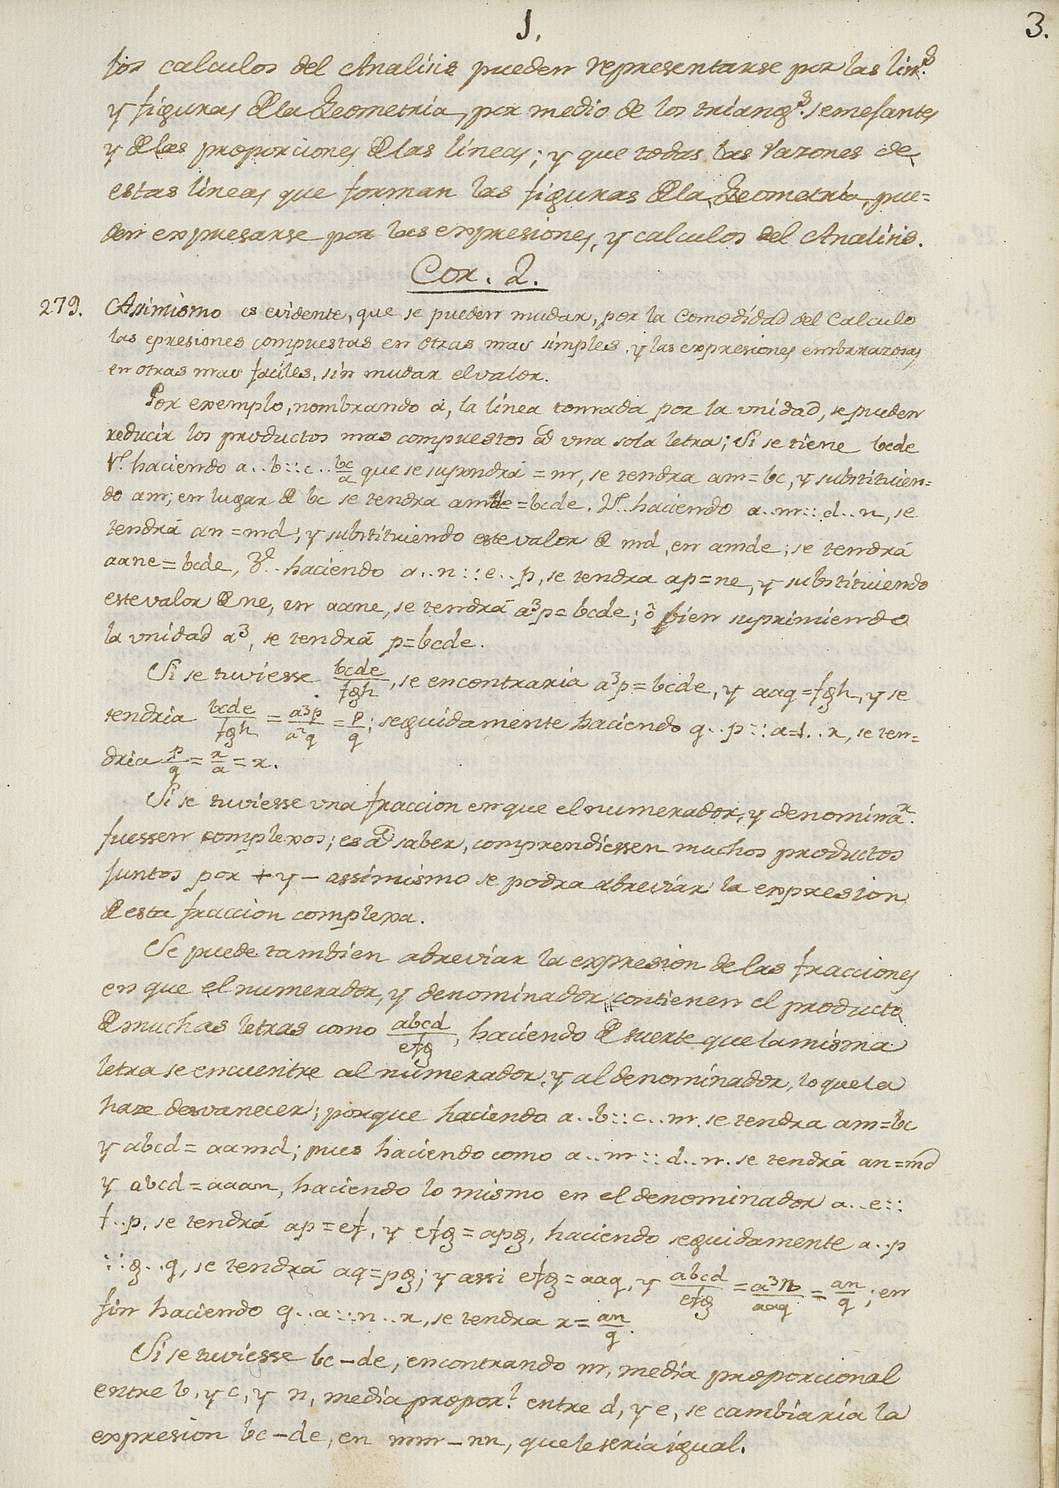 1.
3.
los calculos del Analisis pueden representarse por las lin.s
y figuras de la Geometria, por medio de los triang.s semejantes
y de las proporciones de las lineas; y que todas las razones de
estas lineas que forman las figuras de la Geometria, pue=
den expresarse por las expresiones, y calculos del Analisis.
Cor. 2.
279. Assimismo es evidente, que se pueden mudar, por la Comodidad del Calculo
las epresiones compuestas en otras mas simples, y las expresiones embarazosas
en otras mas faciles, sin mudar el valor.
Por exemplo, nombrando a, la linea tomada por la unidad, se pueden
reducir los productos mas compuestos ad una sola letra; Si se tiene bcde
1.º haciendo a..b::c..bc/a que se supondrá = m, se tendra am=bc, y substituien-
do am, en lugar de bc se tendra amde=bcde. 2.º haciendo a..m::d..n, se
tendrá an=md; y substituiendo este valor de md, en amde; se tendrá
aane=bcde, 3.º haciendo a..n::e..p, se tendra ap=ne, y substituiendo
este valor de ne, en aane, se tendrá a³p=bcde; ô bien suprimiendo
la unidad a³, se tendrá p=bcde.
Si se tuviesse bcde/fgh, se encontraria a³p=bcde, y aaq=fgh, y se
tendria bcde/fgh = a³p/a²q = p/q; seguidamente haciendo q..p::a=1..x, se ten=
dria p/q = x/a = x.
Si se tuviesse una fraccion en que el numerador, y denomina.r
fuessen complexos; es ad saber, comprendiessen muchos productos
juntos por + y - assimismo se podra abreviar la expresion
de esta fraccion complexa.
Se puede tambien abreviar la expresion de las fracciones
en que el numerador, y denominador contienen el producto
de muchas letras como abcd/efg, haciendo de suerte que la misma
letra se encuentre al numerador, y al denominador, lo que la
haze desvanecer; porque haciendo a..b::c..m. se tendra am=bc
y abcd=aamd; pues haciendo como a..m::d..n. se tendrá an=md
y abcd=aaan, haciendo lo mismo en el denominador a..e::
f..p, se tendrá ap=ef, y efg=apg, haciendo seguidamente a..p
::g..q, se tendrá aq=pg; y assi efg=aaq, y abcd/efg = a³n/aaq = an/q; en
fin haciendo q..a::n..x, se tendra x=an/q.
Si se tuviesse bc-de, encontrando m, media proporcional
entre b, y c, y n, media propor.l entre d, y e, se cambiaria la
expresion bc-de, en mm-nn, que le seria igual.